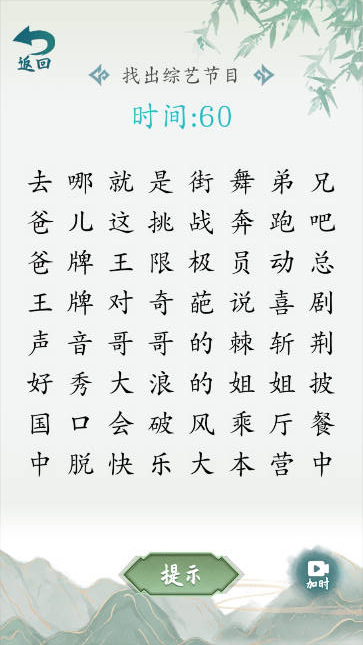 返回
找出综艺节目
时间:60
去哪就是街舞弟兄
爸儿这挑战奔跑吧
爸牌王限极员动总
王牌对奇葩说喜剧
声音哥哥的棘斩荆
好秀大浪的姐姐披
国口会破风乘厅餐
中脱快乐大本营中
提示
加时